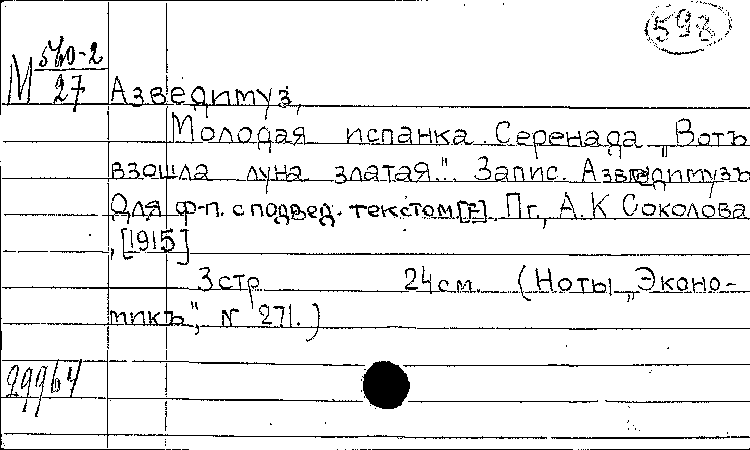 598
М 560-2
27
Азведимуз,
Молодая испанка. Серенада „Вотъ
взошла луна златая.." Запис. Азведимузъ
Для ф-п. с подвед. текстом [F]. Пг., А. К Соколова
, [1915]
3 стр 24 см. (Ноты „Эконо-
микъ", № 271.)
29964